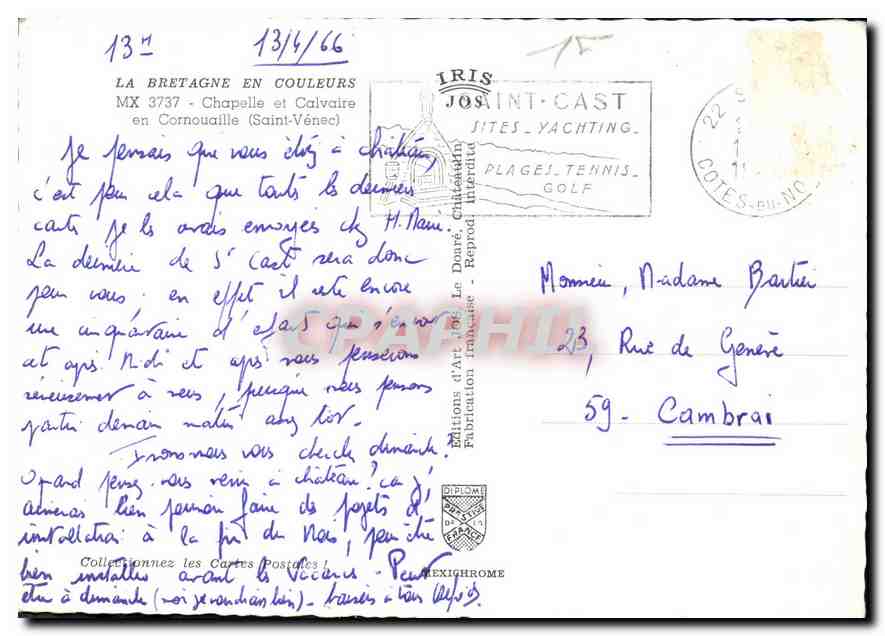 13 H 13/4/66
LA BRETAGNE EN COULEURS
MX 3737 - Chapelle et Calvaire
en Cornouaille (Saint-Vénec)
IRIS
JOS
SAINT-CAST
SITES - YACHTING -
PLAGES - TENNIS -
GOLF
22
COTES-DU-NO
15
Je pensais que vous étiez à château,
c'est pour cela que toutes les dernières
cartes je les avais envoyées chez M.
La dernière de St Cast sera donc
pour vous. en effet il reste encore
une cinquantaine d' qui s'en vont
cet après Midi et après nous penserons
sérieusement à nous, puisque nous pensons
partir demain matin assez tôt.
Irons-nous vous chercher dimanche?
Quand pensez-vous venir à château? car j'
aimerais bien pouvoir faire des projets d'
installation à la fin du Mois, pour être
bien installés avant les Vacances - Peut
être à dimanche (moi je voudrais bien) - baisers à tous
Monsieur, Madame
23, Rue de Genève
59 - Cambrai
Editions d'Art JOS Le Doaré, Châteaulin
Fabrication française - Reprod. interdite
CPAPHIL
DIPLOME
PRESTIGE
DE LA
FRANCE
Collectionnez les Cartes Postales !
MEXICHROME